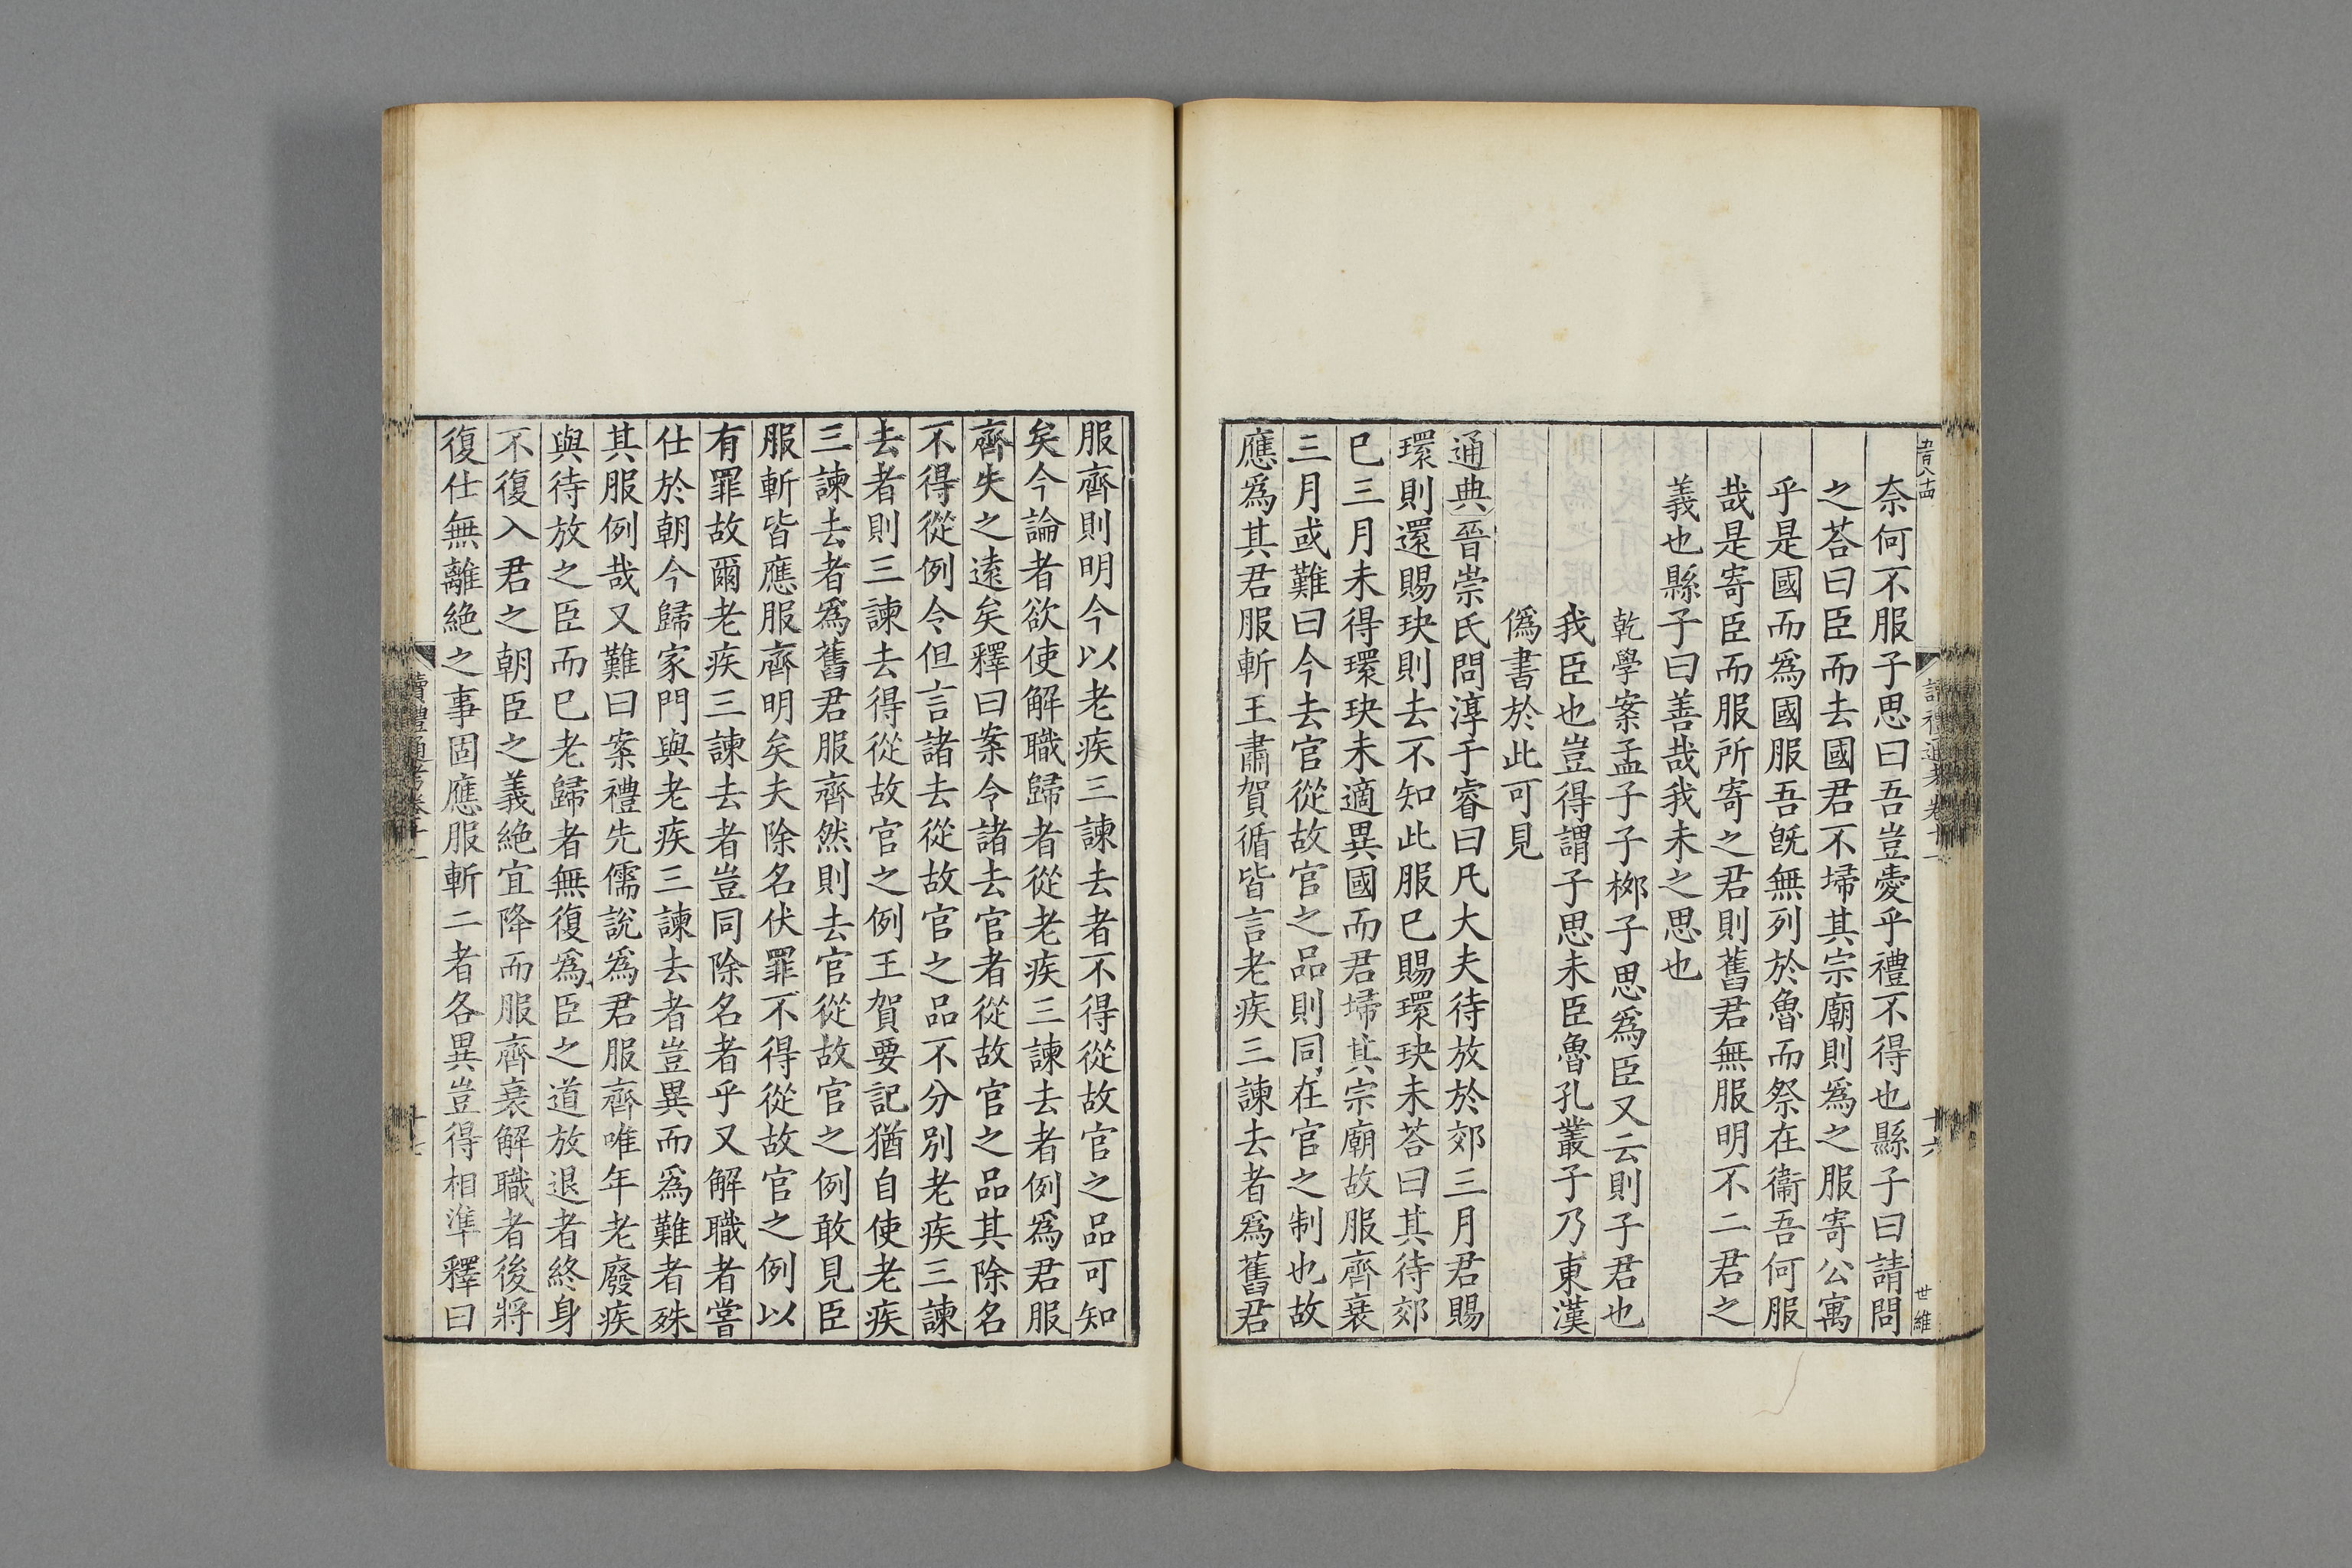 奈何不服子思曰吾豈愛乎禮不得也縣子曰請問
之荅曰臣而去國君不埽其宗廟則爲之服寄公寓
乎是國而爲國服吾旣無列於魯而祭在衞吾何服
哉是寄臣而服所寄之君則舊君無服明不二君之
義也縣子曰善哉我未之思也
乾學案孟子子桞子思爲臣又云則子君也
我臣也豈得謂子思未臣魯孔叢子乃東漢
僞書於此可見
通典晉崇氏問淳于睿曰凡大夫待放於郊三月君賜
環則還賜玦則去不知此服已賜環玦未荅曰其待郊
已三月未得環玦未適異國而君埽其宗廟故服齊衰
三月或難曰今去官從故官之品則同在官之制也故
應爲其君服斬王肅賀循皆言老疾三諫去者爲舊君
世維
十六
服齊則明今以老疾三諫去者不得從故官之品可知
矣今論者欲使解職歸者從老疾三諫去者例爲君服
齊失之遠矣釋曰案令諸去官者從故官之品其除名
不得從例令但言諸去從故官之品不分別老疾三諫
去者則三諫去得從故官之例王賀要記猶自使老疾
三諫去者爲舊君服齊然則去官從故官之例敢見臣
服斬皆應服齊明矣夫除名伏罪不得從故官之例以
有罪故爾老疾三諫去者豈同除名者乎又解職者嘗
仕於朝今歸家門與老疾三諫去者豈異而爲難者殊
其服例哉又難曰案禮先儒說爲君服齊唯年老廢疾
與待放之臣而已老歸者無復爲臣之道放退者終身
不復入君之朝臣之義絶宜降而服齊衰解職者後將
復仕無離絶之事固應服斬二者各異豈得相準釋曰
讀禮通考卷十一
十七